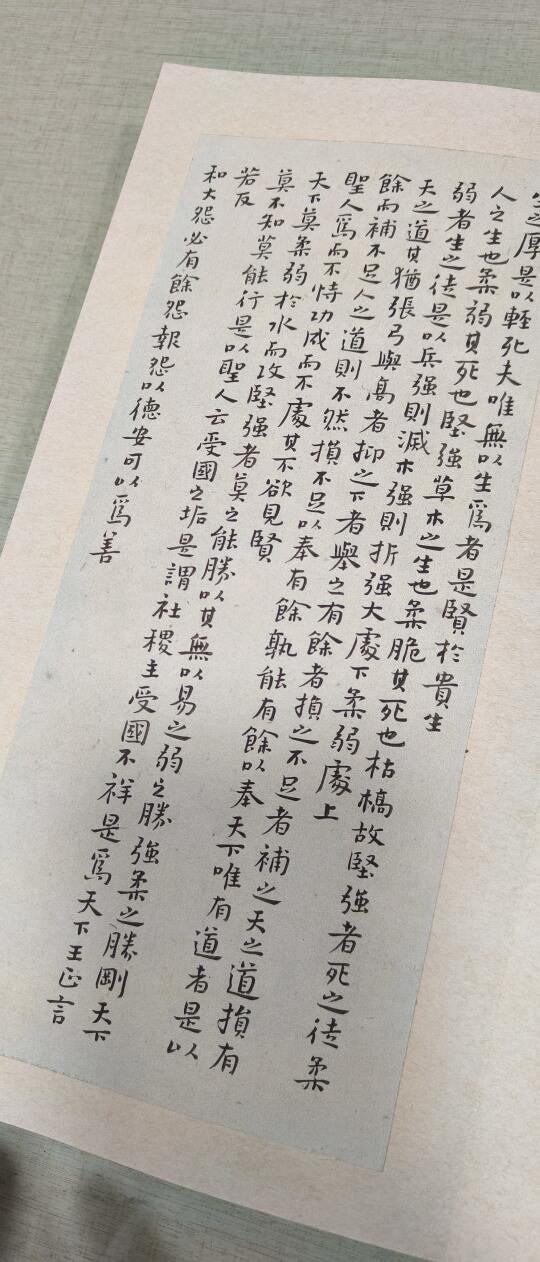 生之厚是以輕死夫唯無以生爲者是賢於貴生
人之生也柔弱其死也堅強草木之生也柔脆其死也枯槁故堅強者死之徒柔
弱者生之徒是以兵强則滅木强則折强大處下柔弱處上
天之道其猶張弓與高者抑之下者舉之有餘者損之不足者補之天之道損有
餘而補不足人之道則不然損不足以奉有餘孰能有餘以奉天下唯有道者是以
聖人爲而不恃功成而不處其不欲見賢
天下莫柔弱於水而攻堅強者莫之能勝以其無以易之弱之勝強柔之勝剛天下
莫不知莫能行是以聖人云受國之垢是謂社稷主受國不祥是爲天下王正言
若反
和大怨必有餘怨報怨以德安可以爲善